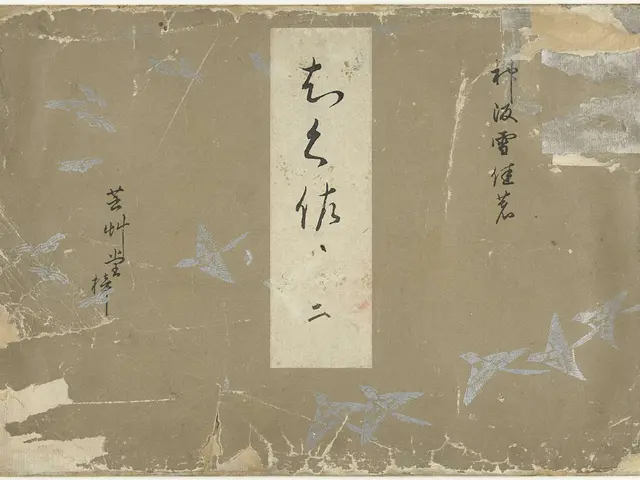 神坂雪佳著
ちく佐
二
芸艸堂梓